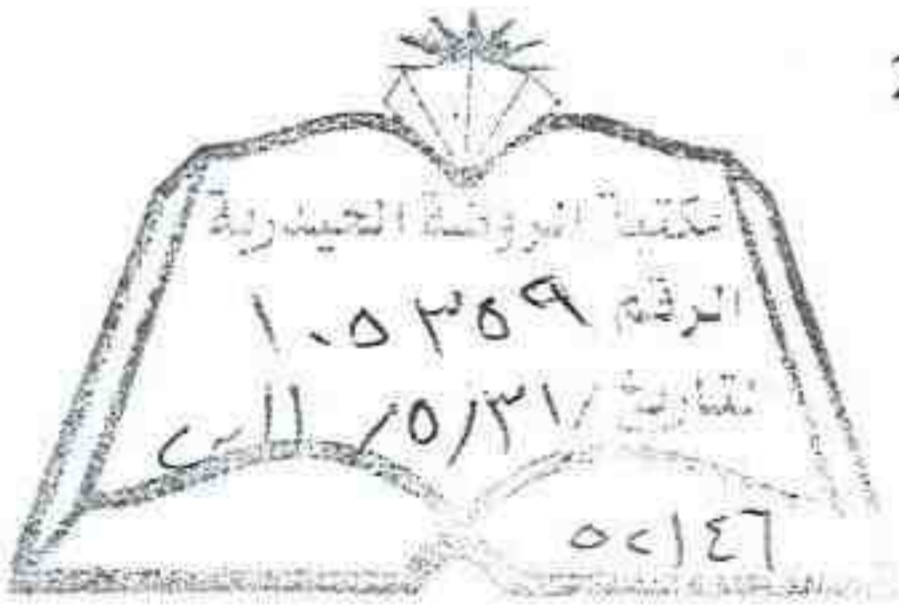 مكتبة الروضة الحيدرية
الرقم ١٠٥٣٥٩
التاريخ ٣١/٥/
٥٢١٤٦